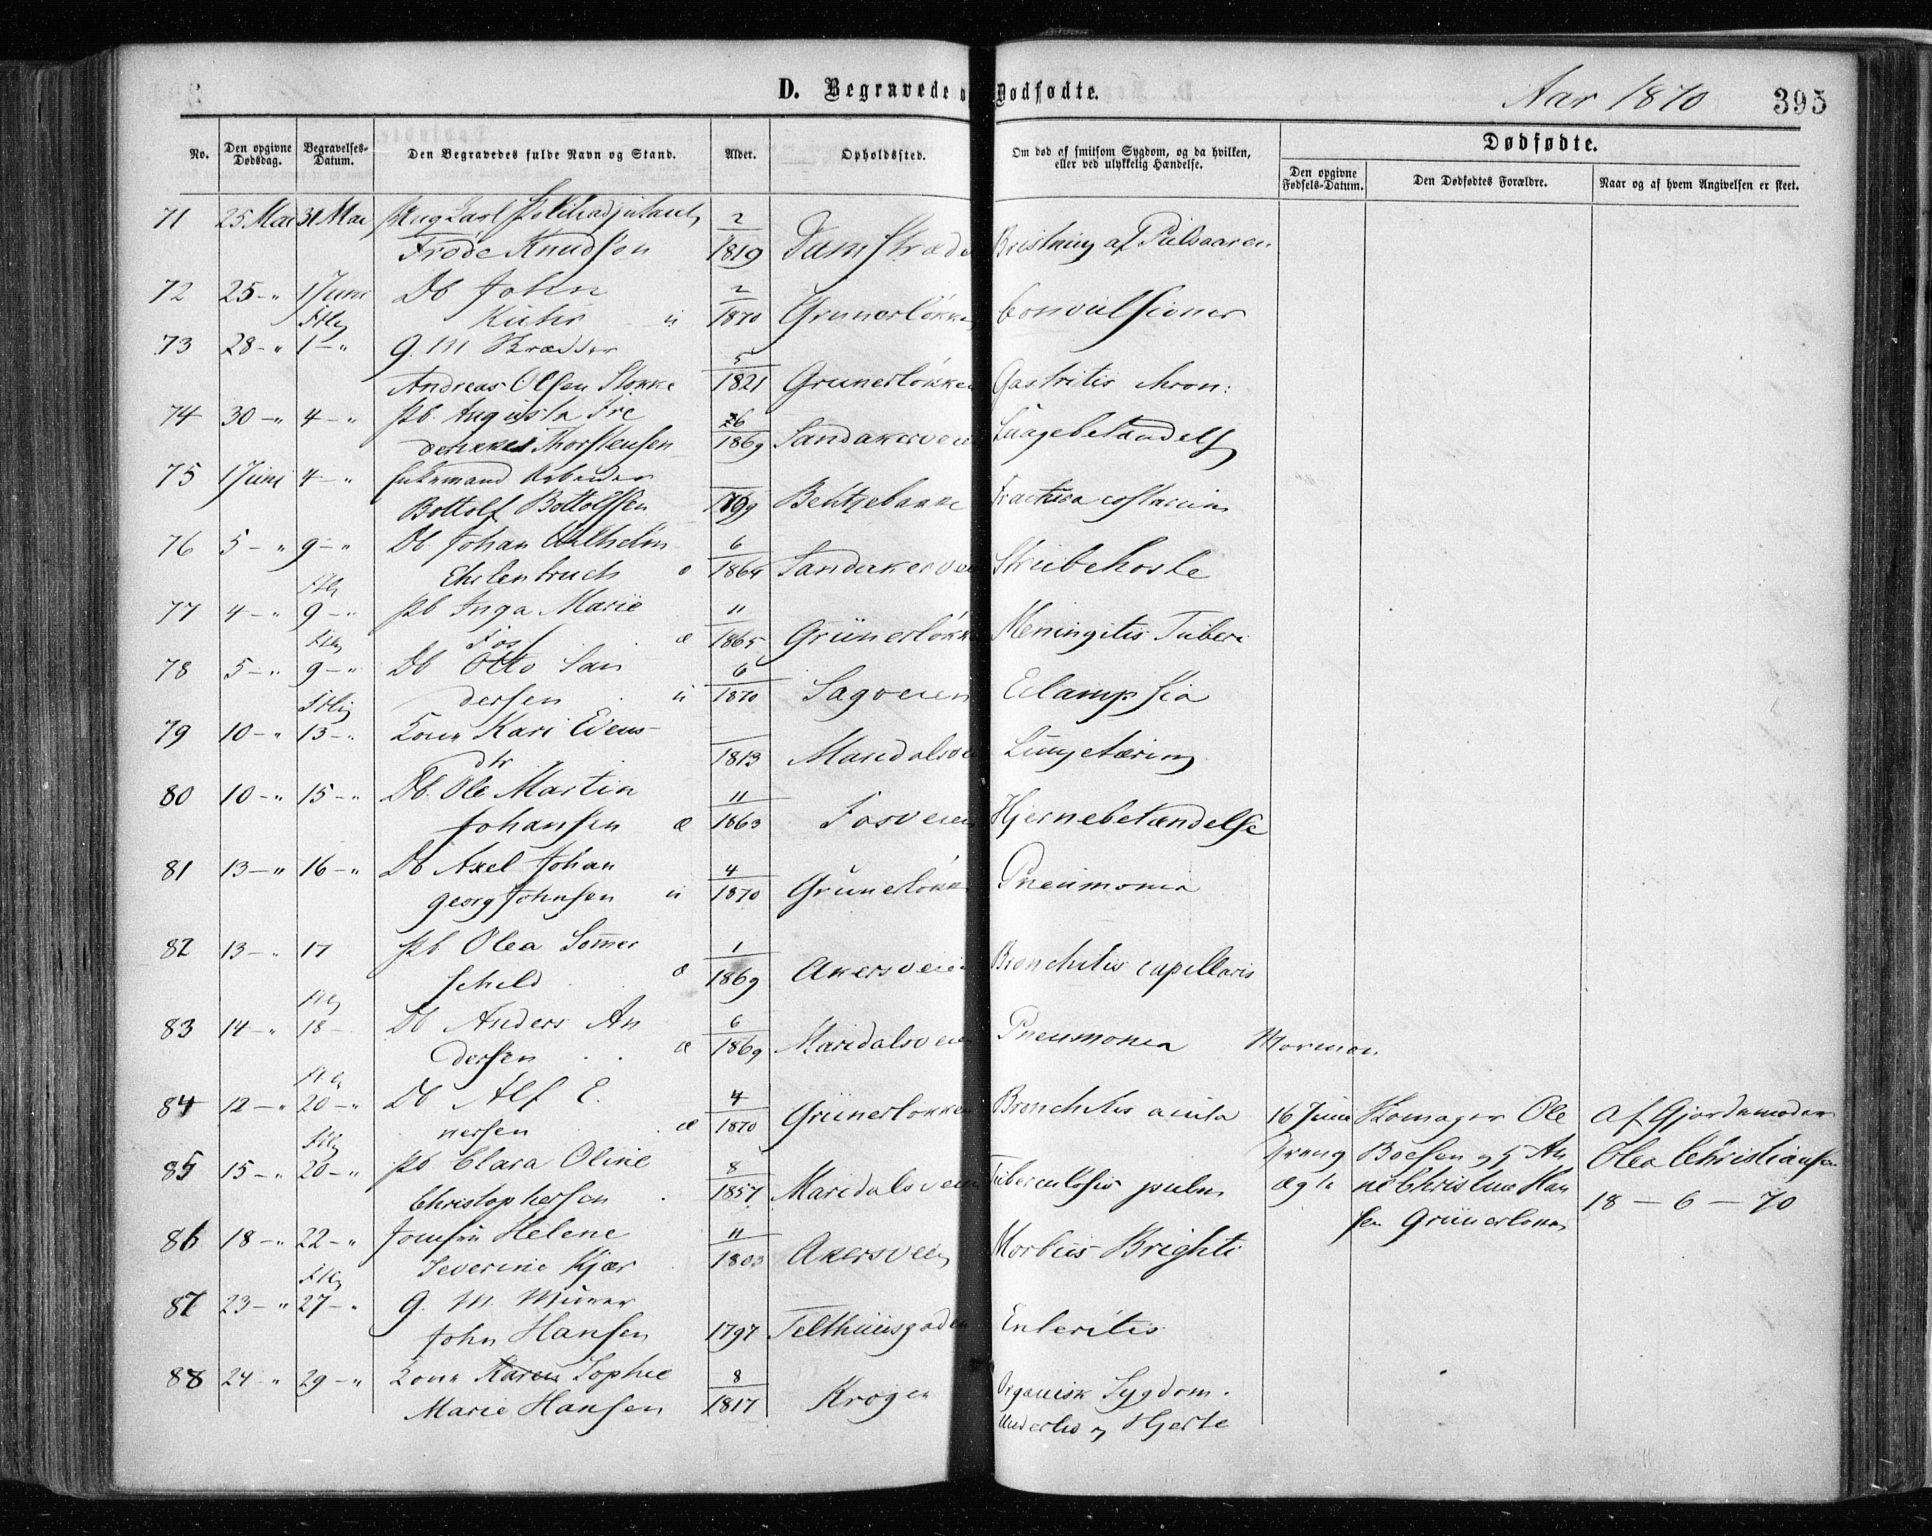 D. Begravede og Dødfødte.
Aar 1870
395
No.
Den opgivne Dødsdag.
Begravelses-Datum.
Den Begravedes fulde Navn og Stand.
Alder.
Opholdssted.
Om død af smitsom Sygdom, og da hvilken, eller ved ulykkelig Hændelse.
Dødfødte.
Den opgivne Fødsels-Datum.
Den Dødfødtes Forældre.
Naar og af hvem Angivelsen er skeet.
71 25 Mai 31 Mai Carl 2
Frode Knudsen 1819 Damstræde Bristning af Pulsaaren
72 25 - " 1 Juni Db John 2
Kühr u 1870 Grünerløkken Convulsioner
73 28 - " 1 - " G. M.
Andreas Olsen Stokke 5 1821 Grünerløkken Gastritis chron:
74 30 - " 4 - " Pb. Augusta Fre 6
derikke Thorstensen 1869 Sandakerveien Lungebetændelse
75 1 Juni 4 - " Enkemand Arbeider
Bottolf Bottolfsen 1799 Bentsebakke Fractura costarum
76 5 - " 9 - " Db Johan Wilhelm 6
Ehrlenbruch 1864 Sandakerveien Strubehoste
77 4 - " 9 - " Pb Inga Marie 11
Fos æ 1865 Grünerløkken Meningitis Tuberc
78 5 - " 9 - " Db Otto San 6
dersen u 1870 Sagveien Eclampsia
79 10 - " 13 - " Kone Kari Evens-
dtr 1813 Maridalsveien Lungetæring
80 10 - " 15 - " Db. Ole Martin 11
Johansen æ 1863 Fosveien Hjernebetændelse
81 13 - " 16 - " Db Axel Johan 4
Georg Johnsen u 1870 Grünerløkken Pneumonia
82 13 - " 17 Pb Olea Sommer 1
schild æ 1869 Akersveien Bronchitis capillaris
83 14 - " 18 - Db Anders An 6
dersen æ 1869 Maridalsveien Pneumonia Mormon
84 12 - " 20 - " Db Alf E. 4
nersen æ 1870 Grünerløkken Bronchitis acuta
16 Juni Skomager Ole af Gjordemoder
Dreng Boesen og An Olea Christiansen
ægte ne Christine Han 18 - 6 - 70
sen Grünerløkken
85 15 - " 20 - " Pb Clara Oline 8
Christophersen 1857 Maridalsveien Tuberculosis pulm
86 18 - " 22 - " Jomfru Helene 11
Severine Kjær 1803 Akersveien Morbus Brighti
87 23 - " 27 - " G. M. Murer
John Hansen 1797 Telthusgaden Enteritis
88 24 - " 29 - " Kone Karen Sophie 8
Marie Hansen 1817 Krogen Organisk Sygdom.
Underliv og Hjerte